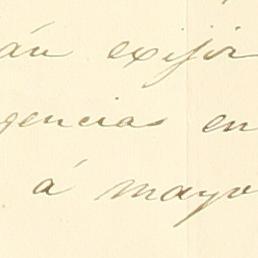 án exijir
gencias en
á mayo